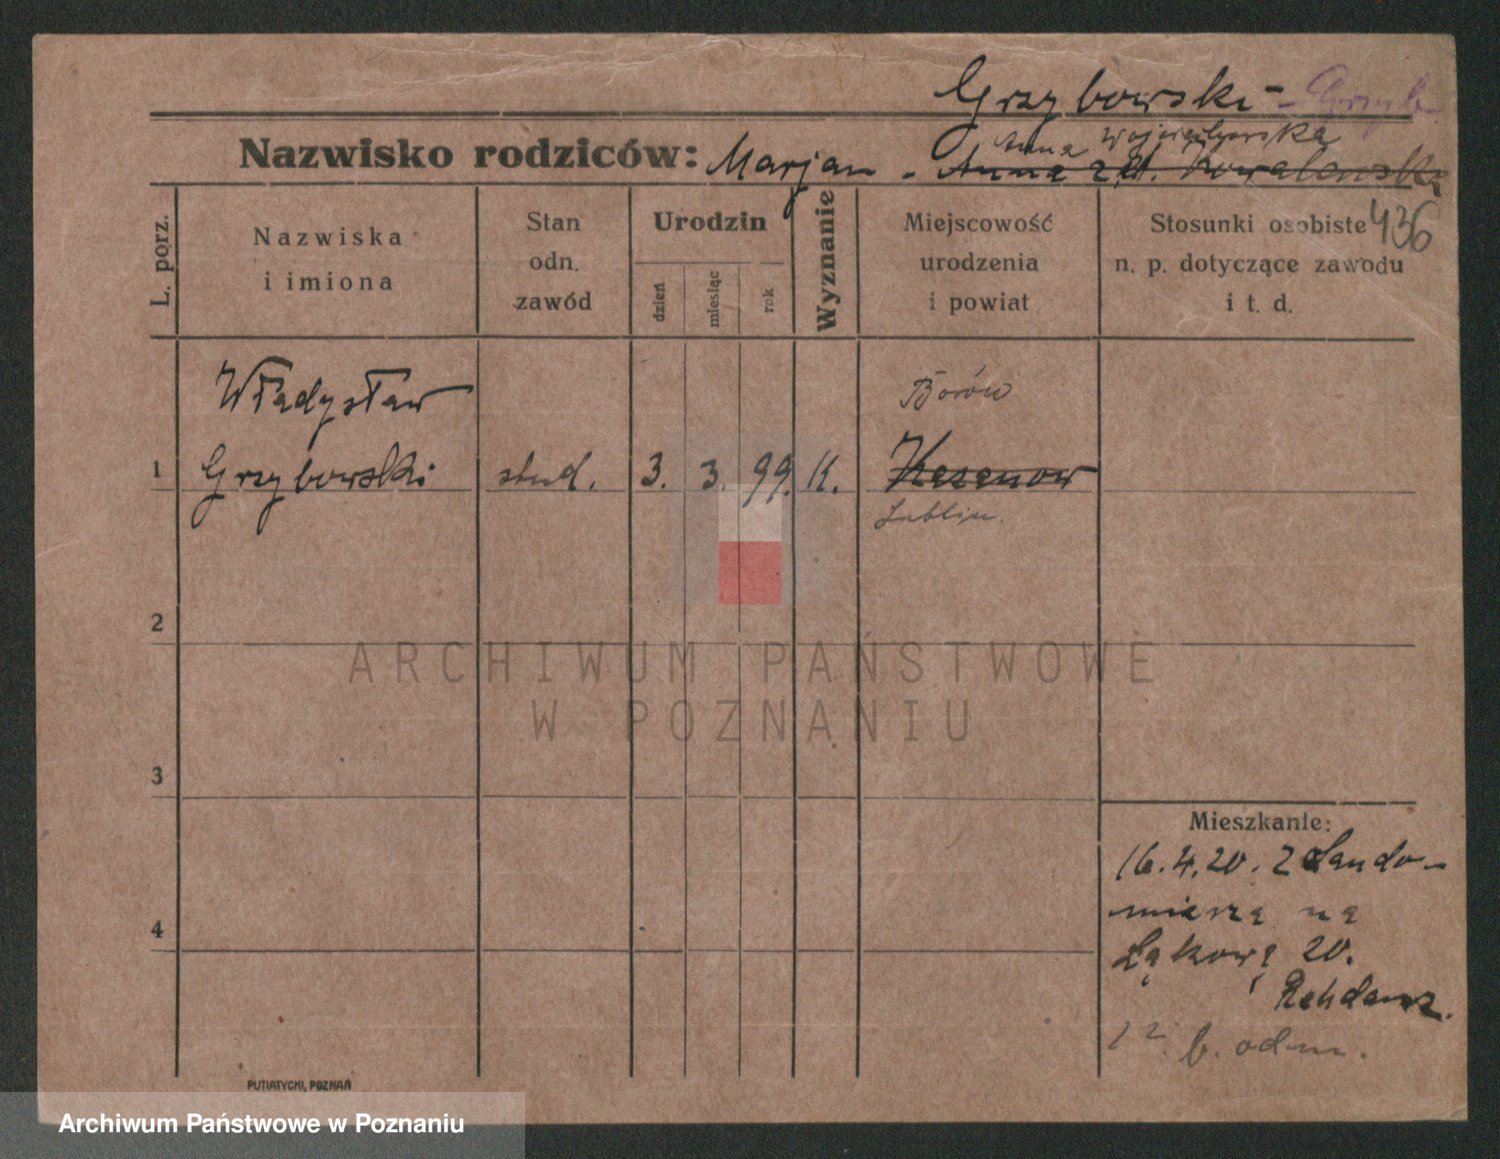 Grzybowski - Grzyb
Nazwisko rodziców: Marjan - Anna
436
L. porz.
Nazwiska
i imiona
Stan
odn.
zawód
Urodzin
dzień
miesiąc
rok
Wyznanie
Miejscowość
urodzenia
i powiat
Stosunki osobiste
n. p. dotyczące zawodu
i t. d.
Władysław
Borów
1 Grzybowski stud. 3. 3. 99. K.
Lublin.
2
ARCHIWUM PAŃSTWOWE
W POZNANIU
3
4
Mieszkanie:
16.4.20. z Sando-
mierza na
Łąkową 20.
b. odm.
PUTIATYCKI, POZNAŃ
Archiwum Państwowe w Poznaniu